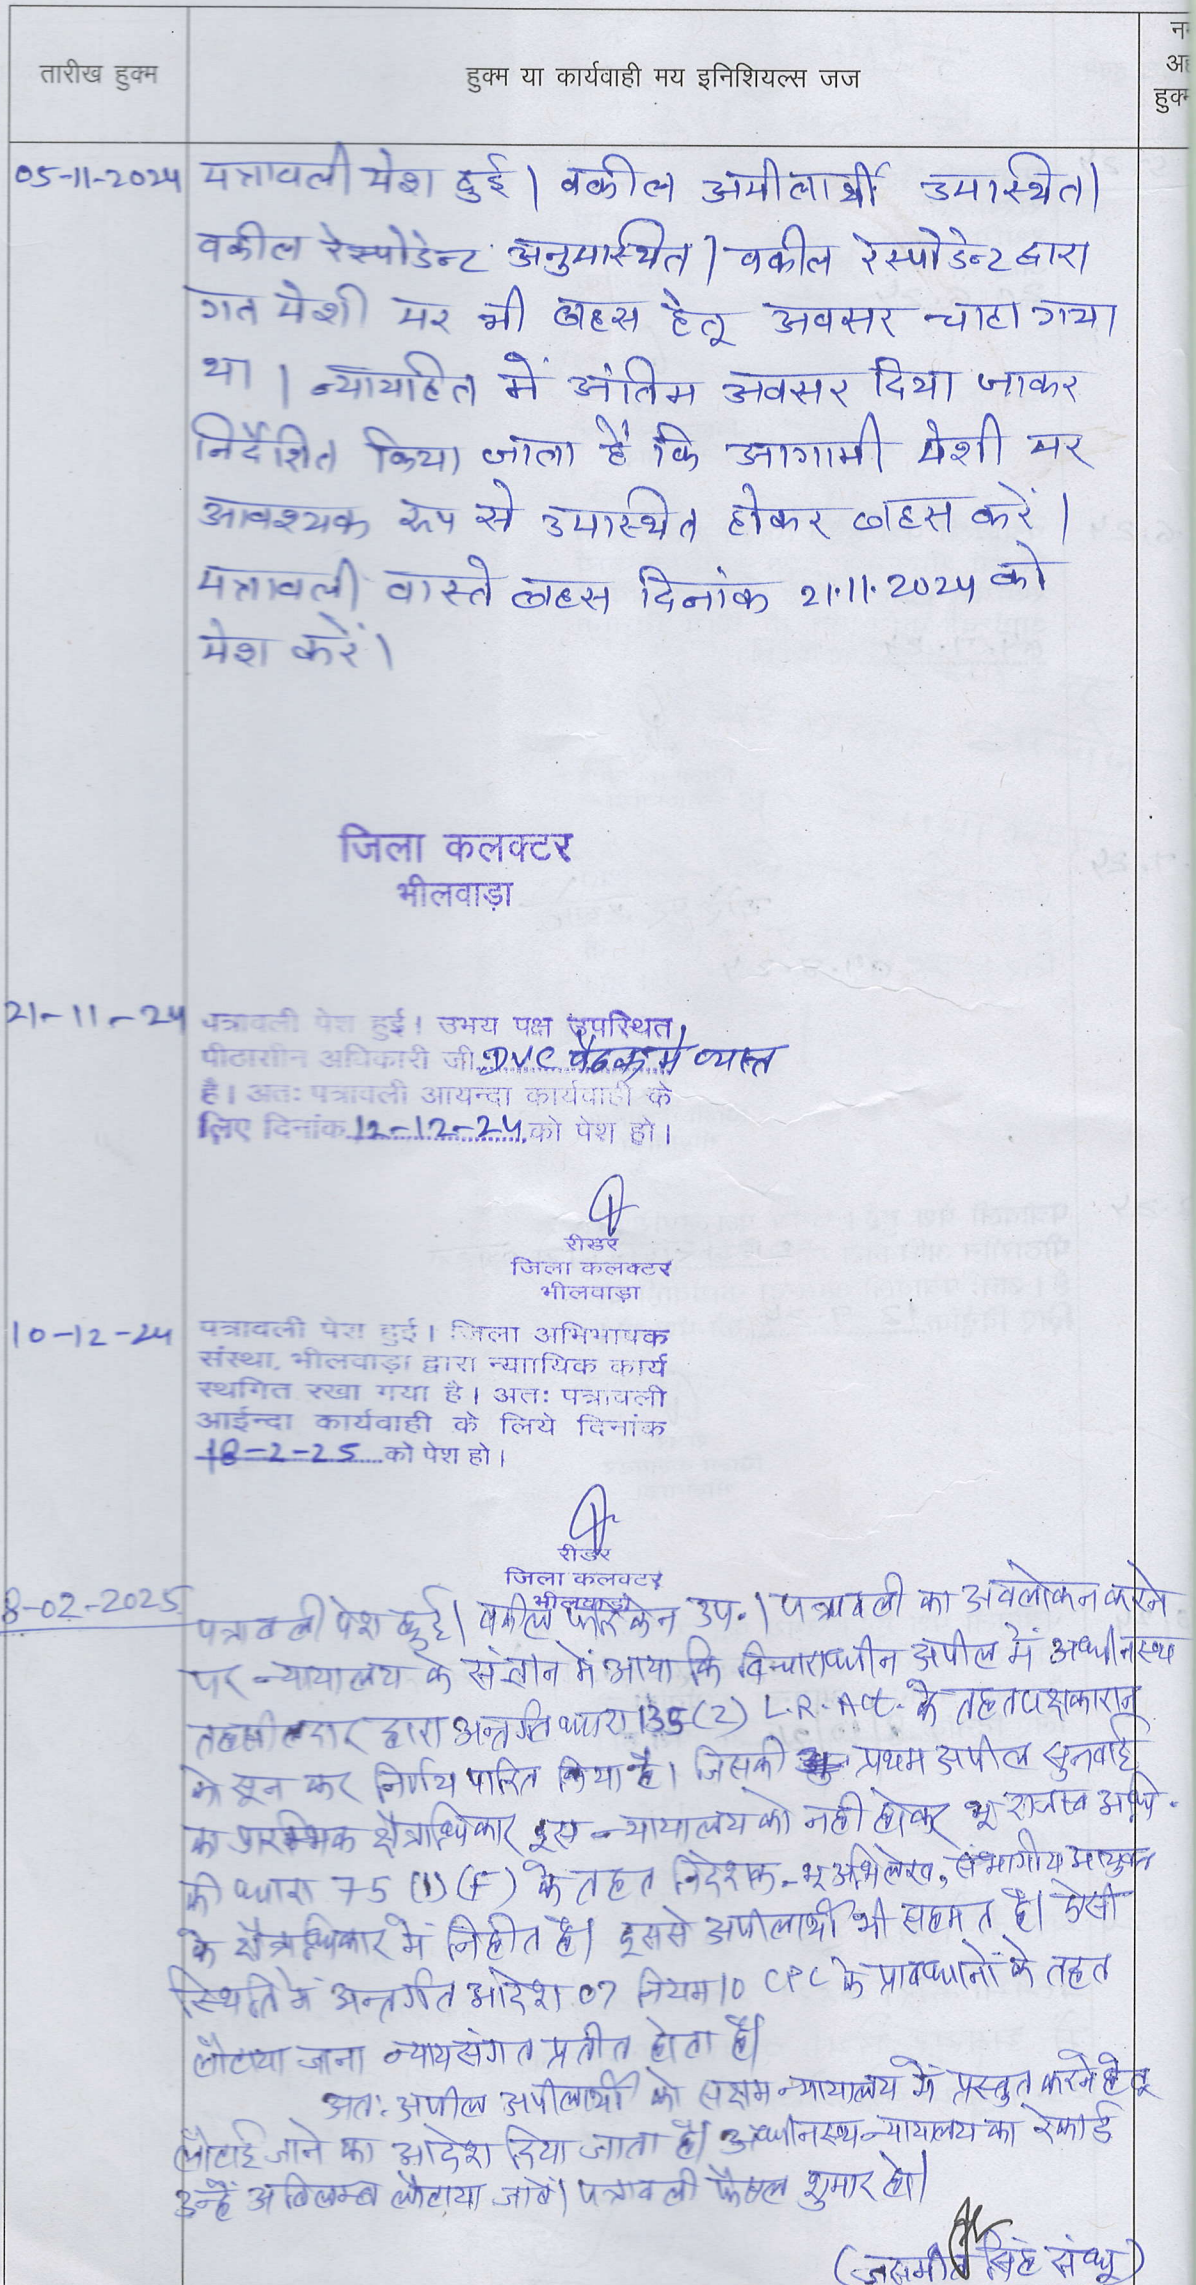 तारीख हुक्म
हुक्म या कार्यवाही मय इनिशियल्स जज
हुक्म
05-11-2024 पत्रावली पेश हुई। वकील अपीलार्थी उपस्थित।
वकील रेस्पोडेन्ट अनुपस्थित। वकील रेस्पोडेन्ट द्वारा
गत पेशी पर भी बहस हेतू अवसर चाहा गया
था। न्यायहित में अंतिम अवसर दिया जाकर
निर्देशित किया जाता है कि आगामी पेशी पर
आवश्यक रूप से उपस्थित होकर बहस करें।
पत्रावली वास्ते बहस दिनांक 21.11.2024 को
पेश करें।
जिला कलक्टर
भीलवाड़ा
21-11-24 पत्रावली पेश हुई। उभय पक्ष उपस्थित,
पीठासीन अधिकारी जी बैठक में व्यस्त
है। अतः पत्रावली आयन्दा कार्यवाही के
लिए दिनांक 12-12-24 को पेश हो।
रीडर
जिला कलक्टर
भीलवाड़ा
10-12-24 पत्रावली पेश हुई। जिला अभिभाषक
संस्था, भीलवाड़ा द्वारा न्यायिक कार्य
स्थगित रखा गया है। अतः पत्रावली
आईन्दा कार्यवाही के लिये दिनांक
18-2-25 को पेश हो।
रीडर
जिला कलक्टर
भीलवाड़ा
8-02-2025 पत्रावली पेश हुई। वकील फरिकेन उप.। पत्रावली का अवलोकन करने
पर न्यायालय के संज्ञान में आया कि विचाराधीन अपील में अधीनस्थ
तहसीलदार द्वारा अन्तर्गत धारा 135(2) L.R. Act. के तहत पक्षकारान
को सून कर निर्णय पारित किया है। जिसकी प्रथम अपील सुनवाई
का प्रारम्भिक क्षैत्राधिकार इस न्यायालय को नही होकर भू राजस्व अधि.
की धारा 75 (1) (F) के तहत निदेशक, भू अभिलेख, संभागीय आयुक्त
के क्षैत्राधिकार में निहीत है। इससे अपीलार्थी भी सहमत है। ऐसी
स्थिति में अन्तर्गत आदेश 07 नियम 10 CPC के प्रावधानों के तहत
लौटाया जाना न्यायसंगत प्रतीत होता है।
अतः अपील अपीलार्थी को सक्षम न्यायालय में प्रस्तुत करने हेतू
लौटाई जाने का आदेश दिया जाता है। अधीनस्थ न्यायालय का रेकार्ड
उन्हें अविलम्ब लौटाया जावें। पत्रावली फैसल शुमार हो।
(जसमीत सिंह संधू)